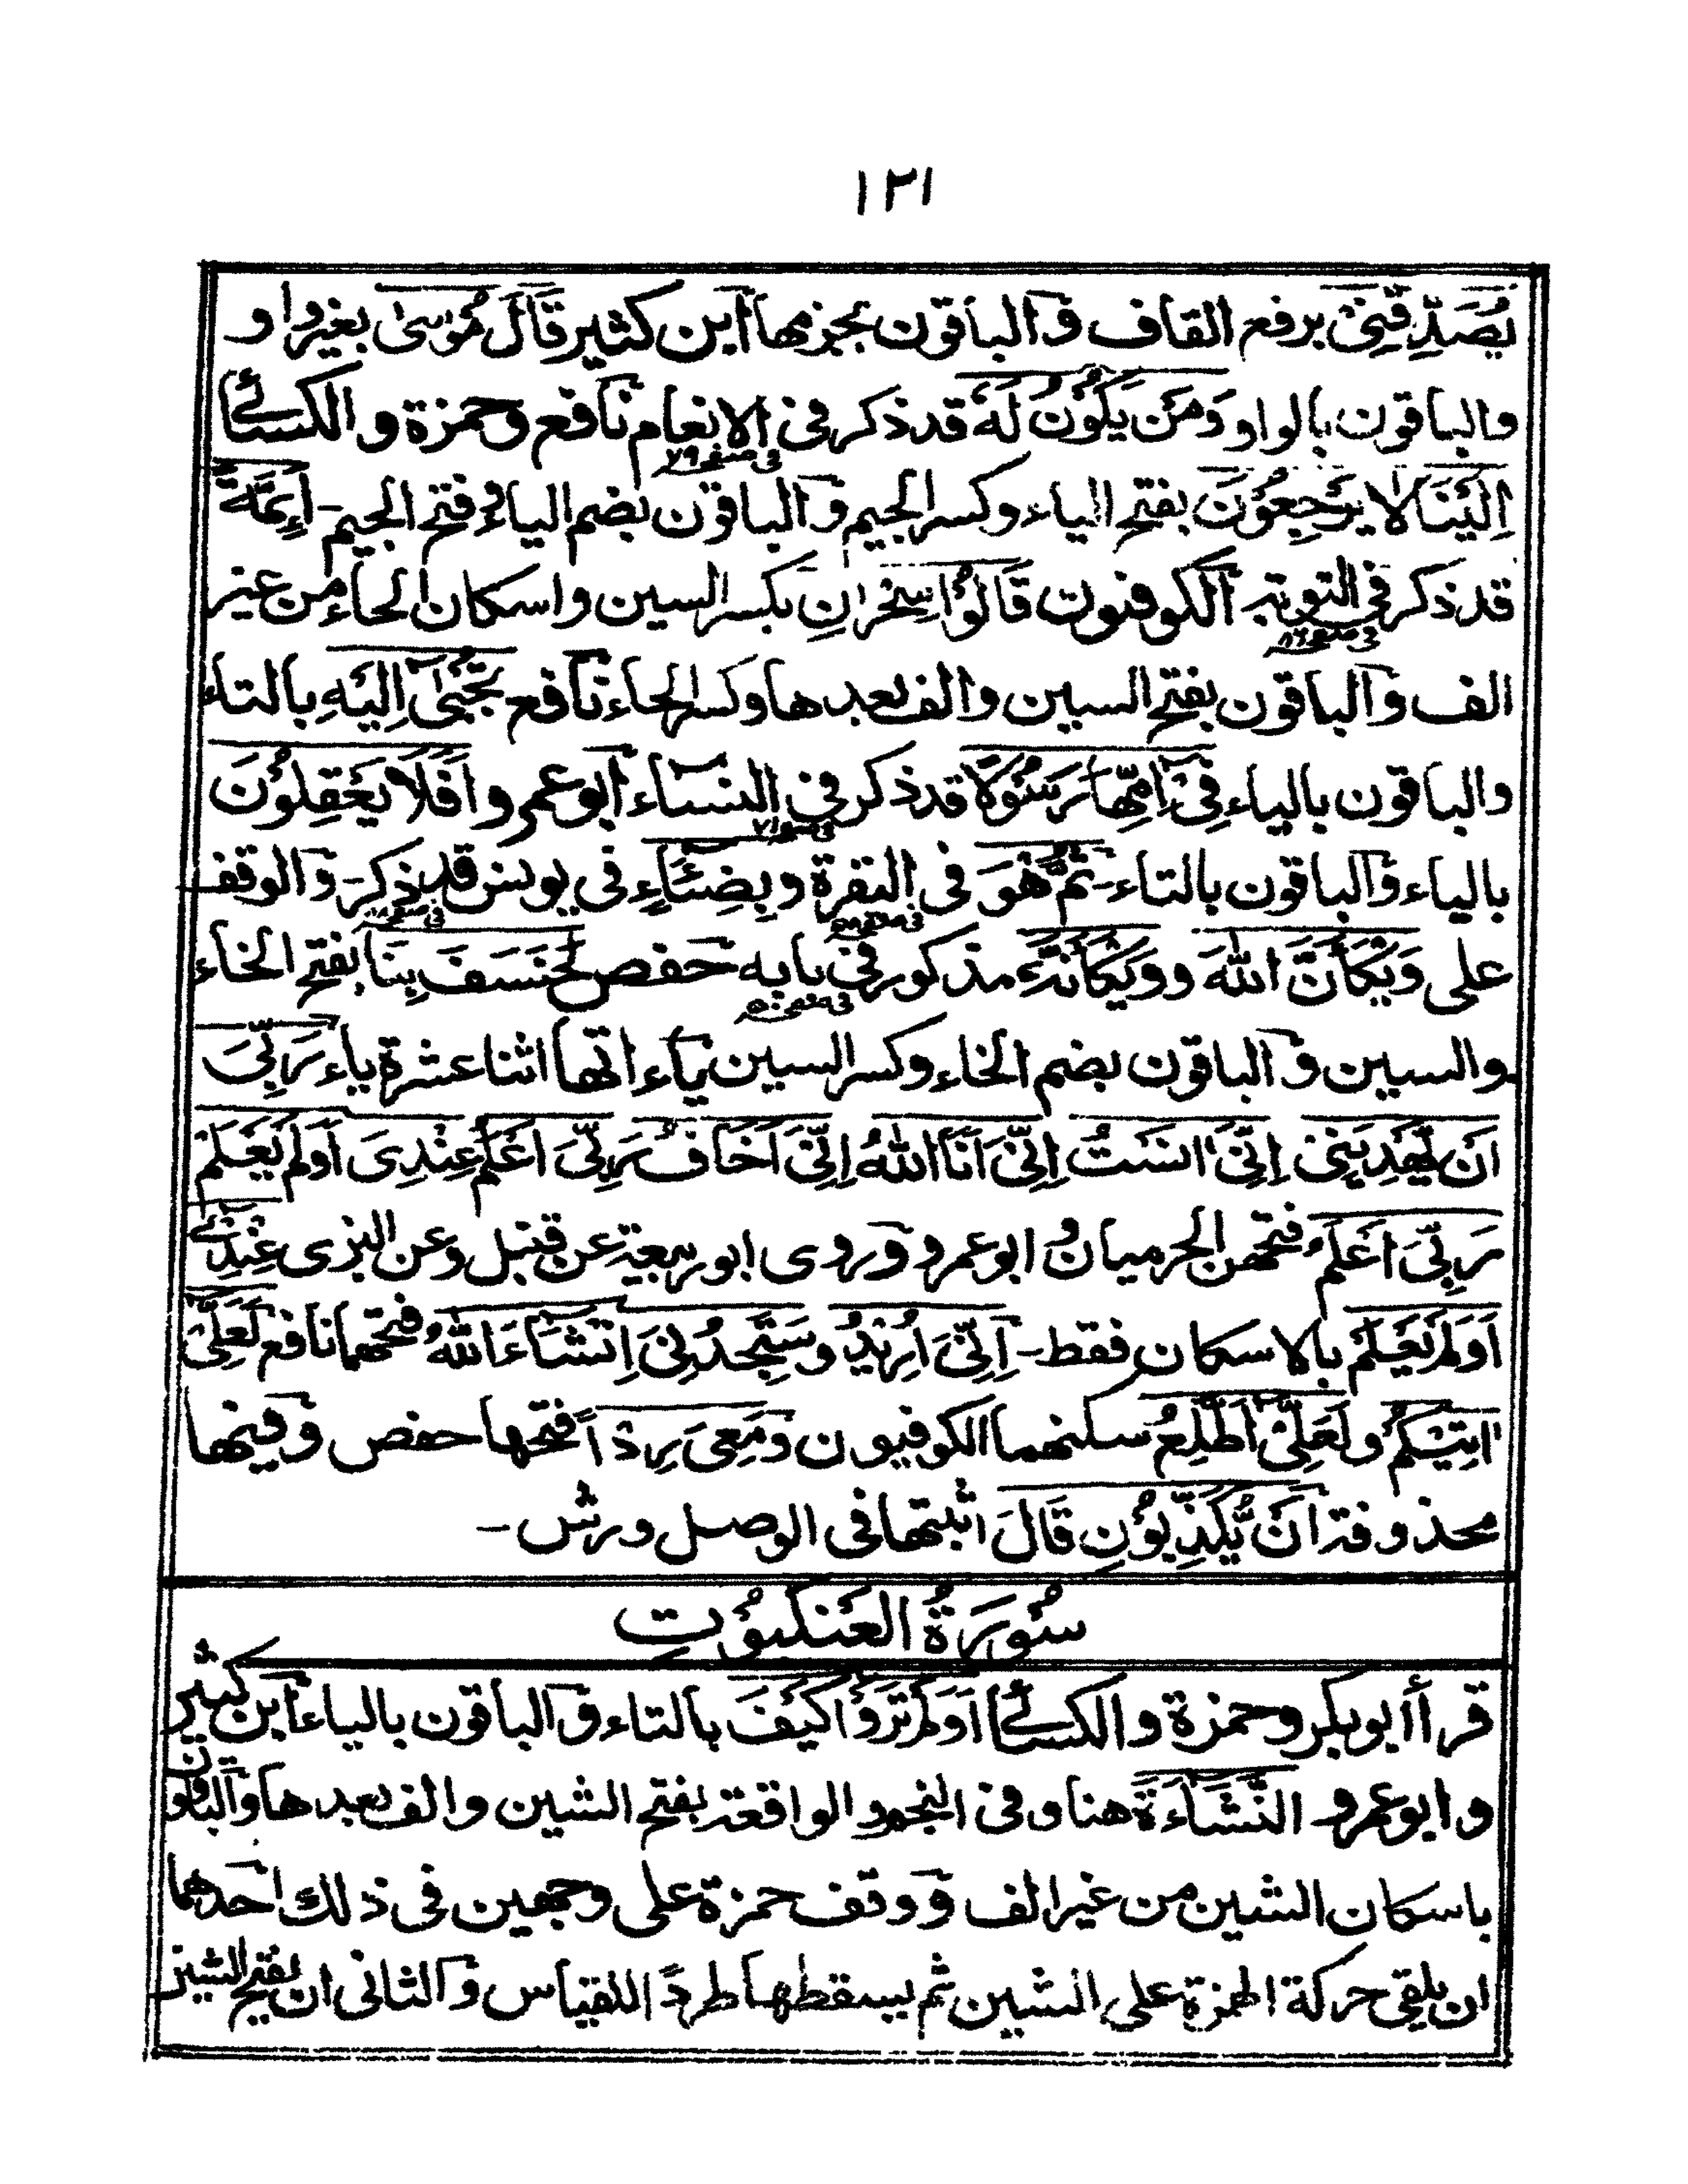 ١٢١
يُصَدِّقُنِیْ برفع القاف وَالباقون بجزمها اَبن كثير قَالَ مُوْسٰى بغير واو
والباقون بالواو وَمَنْ يَكُوْنُ لَهٗ قد ذكر فى الانعام نَافع وحمزة والكسائى
فى صفحہ ٧٩
اِلَيْنَا لَا يَرْجِعُوْنَ بفتح الياء وكسر الجيم وَالباقون بضم الياء وفتح الجيم - اَئِمَّةً
قد ذكر فى التوبة اَلكوفيون قَالُوْا سِحْرَانِ بكسر السين واسكان الحاء من غير
فى صفحہ ٨٦
الف وَالباقون بفتح السين والف بعدها وكسر الحاء نَافع تُجْبٰى اِلَيْهِ بالتاء
والباقون بالياء فِىْٓ اِمِّهَا رَسُوْلًا قد ذكر فى النساء اَبو عمرو اَفَلَا يَعْقِلُوْنَ
فى صفحہ ٧١
بالياء وَالباقون بالتاء - ثُمَّ هُوَ فى البقرة وبِضِئَآءٍ فى يونس قد ذكر - وَالوقف
على وَيْكَاَنَّ اللّٰهَ وَوَيْكَاَنَّهٗ مذكور فى بابه حَفص لَخَسَفَ بِنَا بفتح الخاء
والسين وَالباقون بضم الخاء وكسر السين يَاءاتها اثنا عشرة ياء رَبِّىَ
اَنْ يَّهْدِيَنِىْ اِنِّىَ اٰنَسْتُ اِنِّىَ اَنَا اللّٰهُ اِنِّىَ اَخَافُ رَبِّىَ اَعْلَمُ عِنْدِىَ اَوَلَمْ يَعْلَمْ
رَبِّىَ اَعْلَمُ فتحهن الحرميان وَابو عمرو وَروى ابو ربيعة عن قنبل وعن البزى عِنْدِىْٓ
اَوَلَمْ يَعْلَمْ بالاسكان فقط - اِنِّىَ اُرِيْدُ وسَتَجِدُنِىَ اِنْشَآءَ اللّٰهُ فتحهما نافع لَعَلِّىْٓ
اٰتِيْكُمْ ولَعَلِّىْٓ اَطَّلِعُ سكنهما الكوفيون وَمَعِىَ رِدْاً فتحها حفص وَفيها
محذوفة اَنْ يُّكَذِّبُوْنِ قَالَ اثبتها فى الوصل ورش -
سُوْرَةُ الْعَنْكَبُوْتِ
قرأ ابو بكر وحمزة والكسائى اَوَلَمْ تَرَوْا كَيْفَ بالتاء وَالباقون بالياء اَبن كثير
وابو عمرو النَّشَآءَةَ هنا وفى النجم والواقعة بفتح الشين والف بعدها وَالباقون
باسكان الشين من غير الف وَوقف حمزة على وجهين فى ذلك احدهما
ان يلقى حركة الهمزة على الشين ثم يسقطها طردًا للقياس وَالثانى ان يفتح الشين